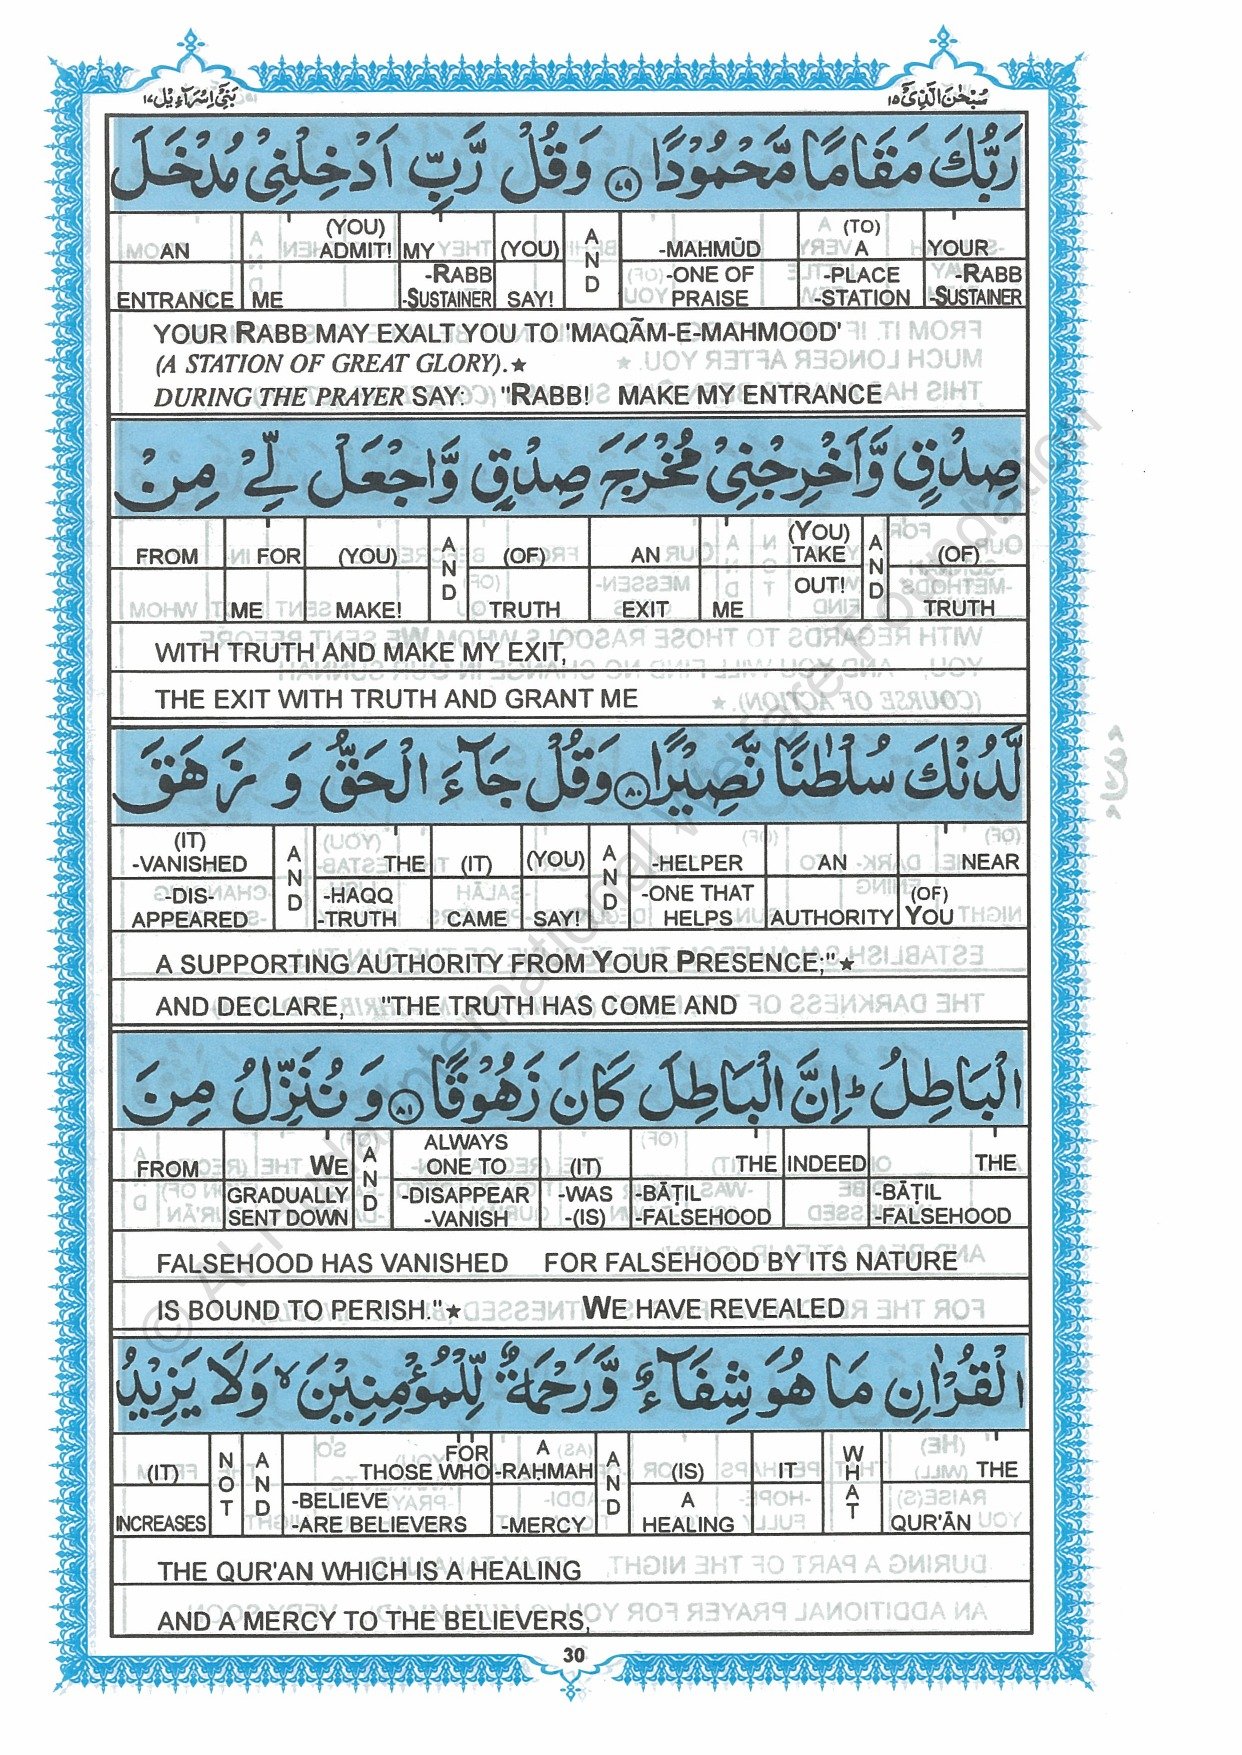 بَنِيْٓ اِسْرَآءِيْل ١٧
سُبْحٰنَ الَّذِيْٓ ١٥
رَبُّكَ مَقَامًا مَّحْمُوْدًا ٧٩ وَقُلْ رَّبِّ اَدْخِلْنِيْ مُدْخَلَ
AN | (YOU) ADMIT! | MY | (YOU) | AND | -MAHMŪD | (TO) A | YOUR
ENTRANCE | ME | -RABB -SUSTAINER | SAY! | -ONE OF PRAISE | -PLACE -STATION | -RABB -SUSTAINER
YOUR RABB MAY EXALT YOU TO 'MAQÃM-E-MAHMOOD'
(A STATION OF GREAT GLORY).★
DURING THE PRAYER SAY: "RABB! MAKE MY ENTRANCE
صِدْقٍ وَّاَخْرِجْنِيْ مُخْرَجَ صِدْقٍ وَّاجْعَلْ لِّيْ مِنْ
FROM | FOR | (YOU) | AND | (OF) | AN | (YOU) TAKE | AND | (OF)
ME | MAKE! | TRUTH | EXIT | ME | OUT! | TRUTH
WITH TRUTH AND MAKE MY EXIT,
THE EXIT WITH TRUTH AND GRANT ME
لَّدُنْكَ سُلْطٰنًا نَّصِيْرًا ٨٠ وَقُلْ جَآءَ الْحَقُّ وَ زَهَقَ
(IT) -VANISHED | AND | THE | (IT) | (YOU) | AND | -HELPER | AN | NEAR
-DIS-APPEARED | -HAQQ -TRUTH | CAME | SAY! | -ONE THAT HELPS | AUTHORITY | (OF) YOU
A SUPPORTING AUTHORITY FROM YOUR PRESENCE;"★
AND DECLARE, "THE TRUTH HAS COME AND
الْبَاطِلُ ؕ اِنَّ الْبَاطِلَ كَانَ زَهُوْقًا ٨١ وَ نُنَزِّلُ مِنَ
FROM | WE | AND | ALWAYS ONE TO | (IT) | THE | INDEED | THE
GRADUALLY SENT DOWN | -DISAPPEAR -VANISH | -WAS -(IS) | -BĀṬIL -FALSEHOOD | -BĀṬIL -FALSEHOOD
FALSEHOOD HAS VANISHED FOR FALSEHOOD BY ITS NATURE
IS BOUND TO PERISH."★ WE HAVE REVEALED
الْقُرْاٰنِ مَا هُوَ شِفَآءٌ وَّرَحْمَةٌ لِّلْمُؤْمِنِيْنَ ۙ وَلَا يَزِيْدُ
(IT) | NOT | AND | FOR THOSE WHO | A -RAHMAH | AND | (IS) | IT | WHAT | THE
INCREASES | -BELIEVE -ARE BELIEVERS | -MERCY | A HEALING | QUR'ĀN
THE QUR'AN WHICH IS A HEALING
AND A MERCY TO THE BELIEVERS,
30